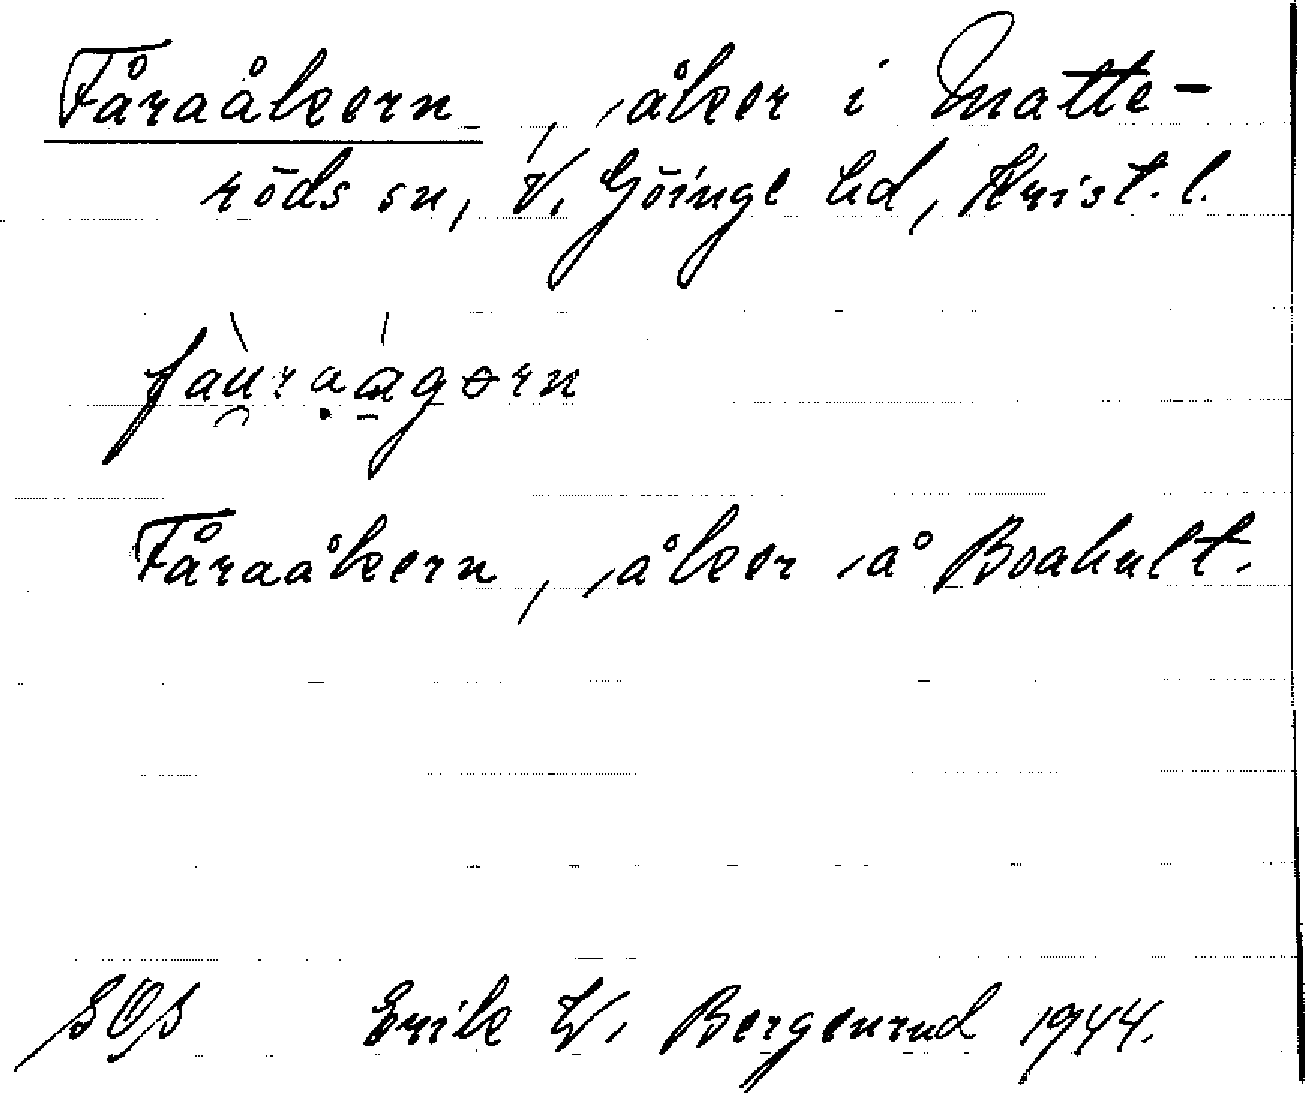 Fåraåkern, åker i Matte-
röds sn, V. Göinge hd, Krist. l.
fàu̯raágərn
Fåraåkern, åker å Boahult.
SOS Erik W. Bergenrud 1944.